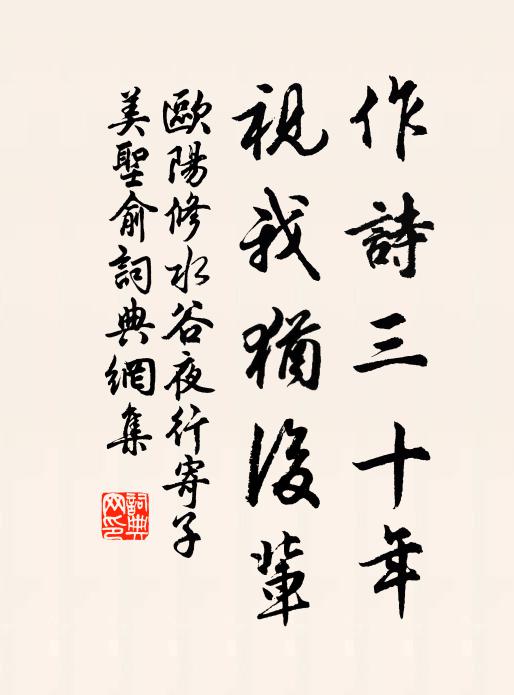 作詩三十年
視我猶後輩
歐陽修水谷夜行寄子
美聖俞詞典網集
詞典
网印